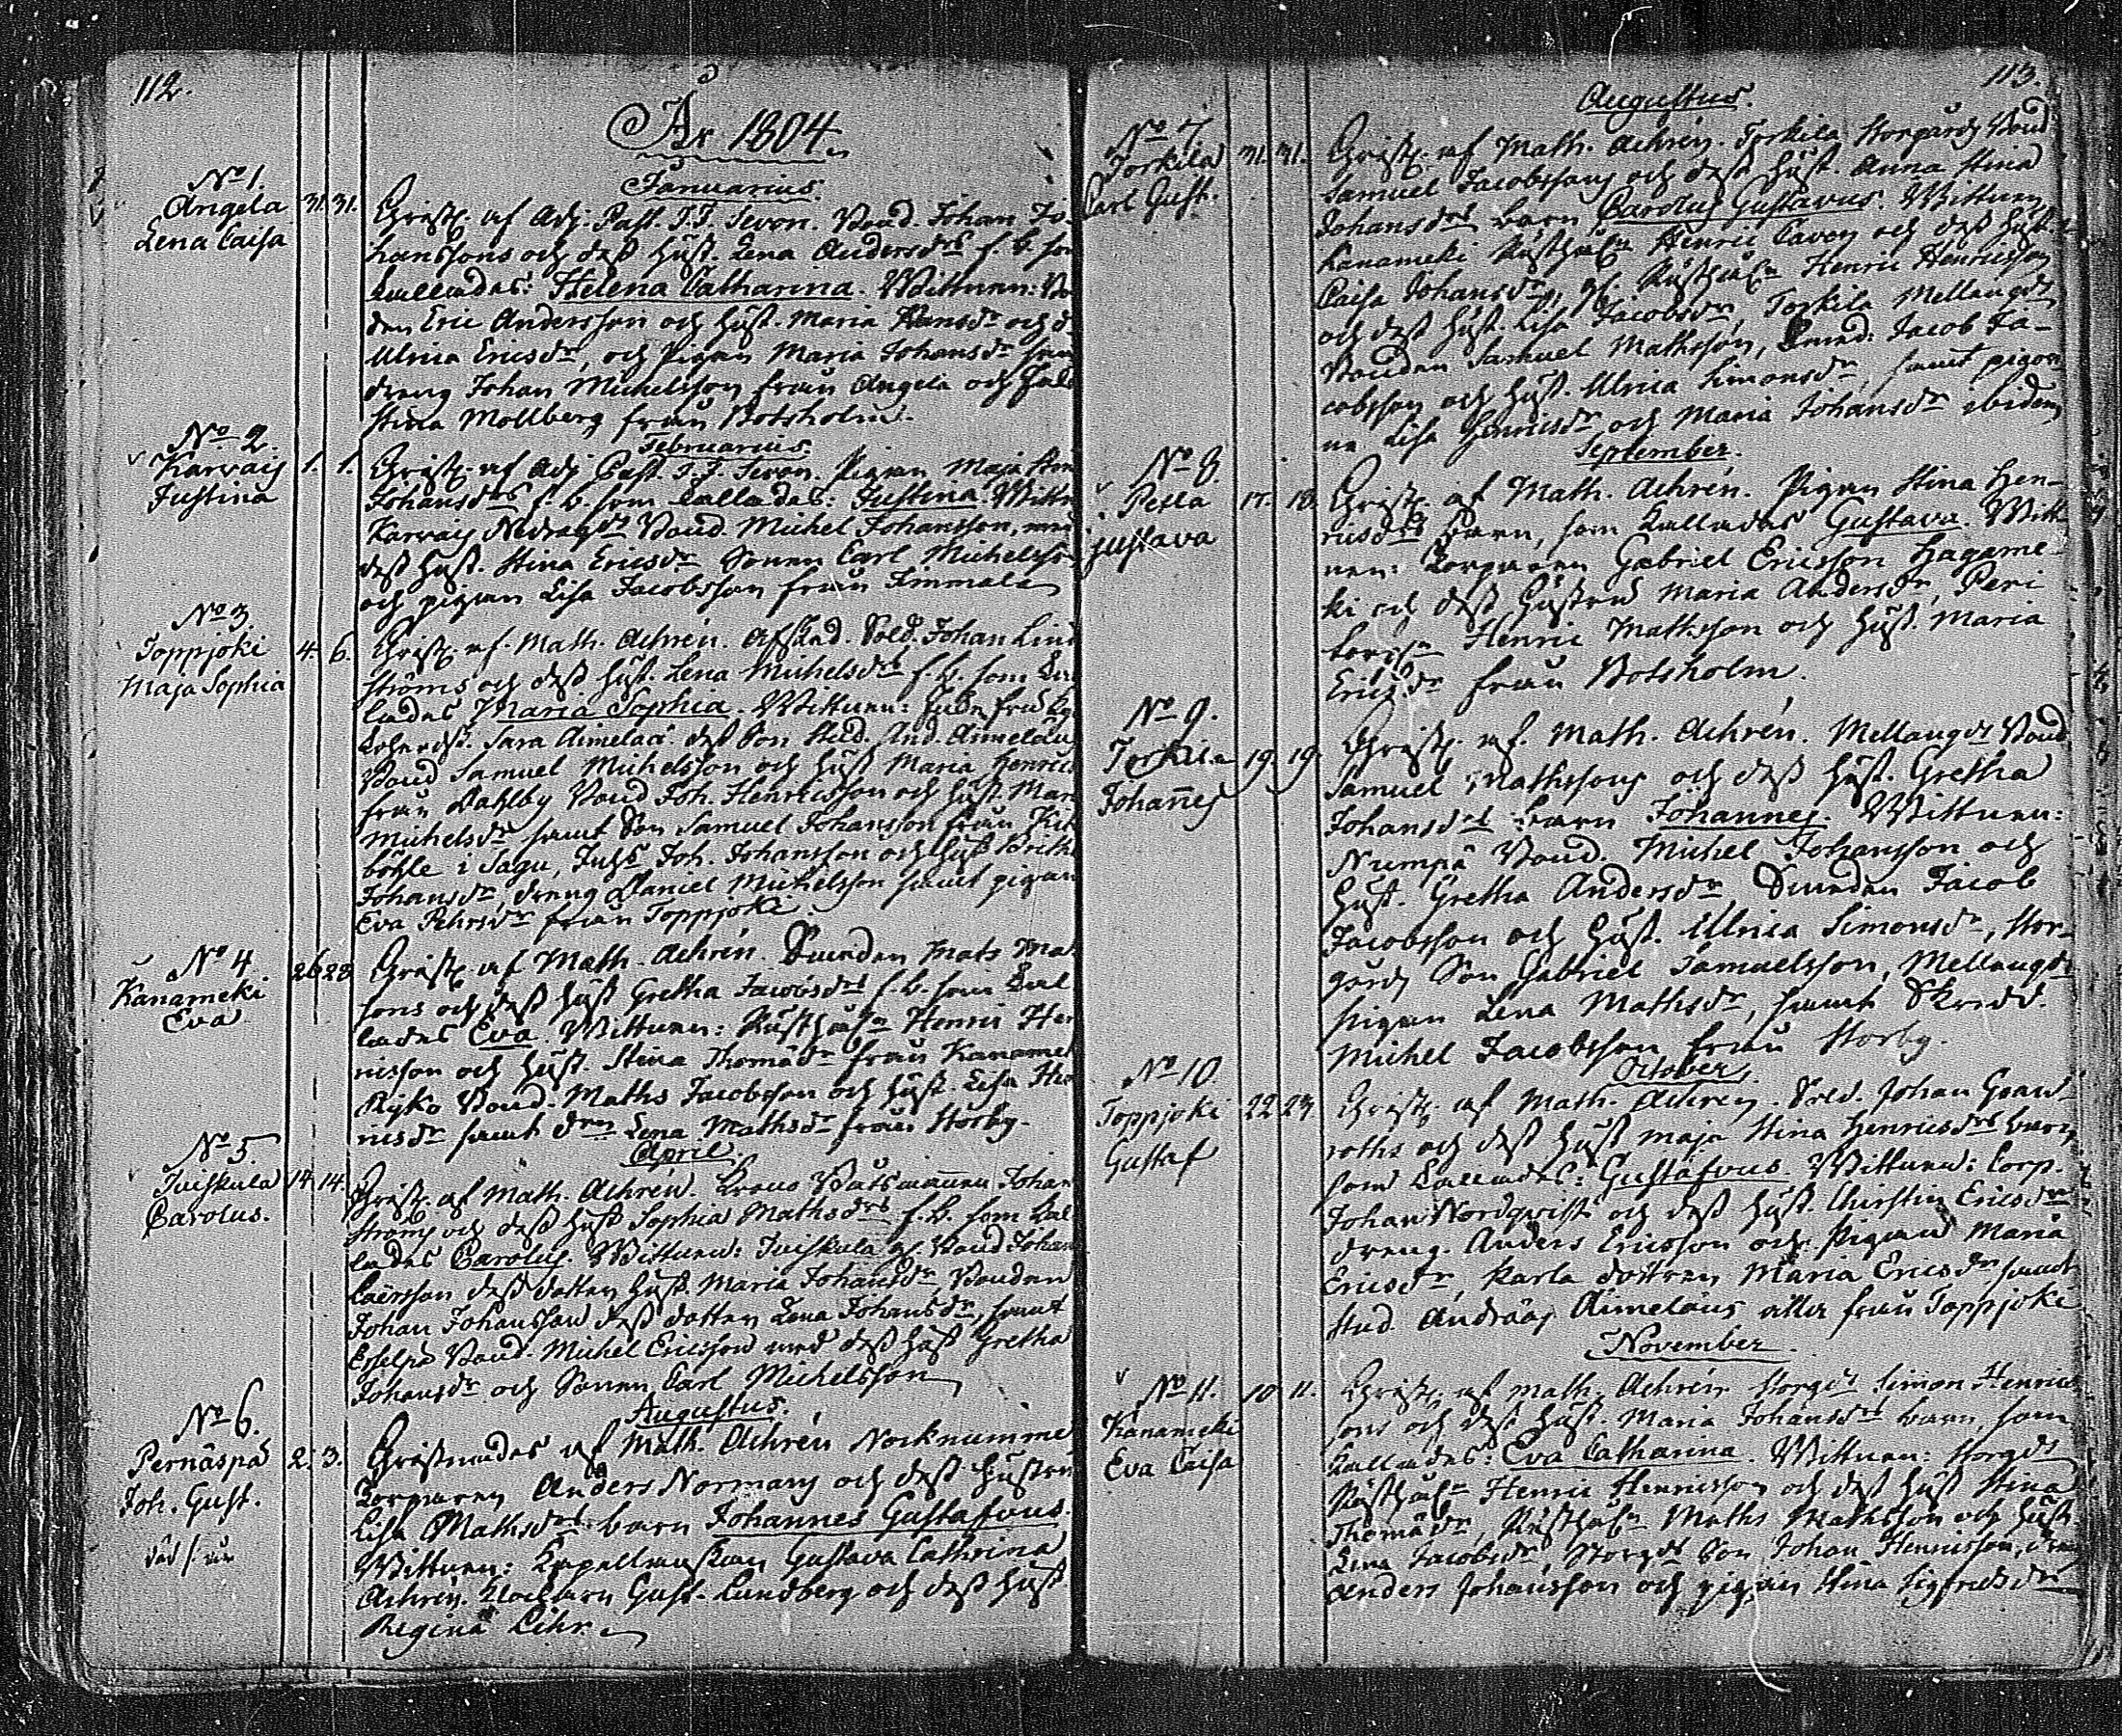 112.
År 1804.
Januarius.
No 1.
Angela 31. 31.
Lena Caisa
Christ. af Adj. Past. J. J. Sevon. Bond. Johan Jo-
hanssons och dess hust. Lena Andersdrs f. b. som
kallades: Helena Catharina. Wittnen: Bon
den Eric Andersson och hust. Maria Hansdr och d
Ulrica Ericsdr, och pigan Maria Johansdr samt
dreng Johan Michelsson från Angela och
Stina Mollberg från Botsholm.
Februarius.
No 2.
Karvais 1. 1.
Justina
Christ. af Adj. Past. J. J. Sevon. Pigan Maja Stin
Johansdrs f. b. som kallades: Justina. Wittn
Karvais Nedragds Bond. Michel Johansson, med
dess hust. Stina Ericsdr Sonen Carl Michelsson
och pigan Lisa Jacobsson från Kimmala
No 3.
Toppjoki 4. 6.
Maja Sophia
Christ. af. Math. Achrén. Afsked. Sold. Johan Lind
ströms och dess hust. Lena Michelsdrs f. b. som kal
lades Maria Sophia. Wittnen:
Sara Aimelaa. dess Son Stud. And. Aimelæus
Bond Samuel Michelsson och hust Maria Henrics
från Dahlby Bond Joh. Henricsson och hust. Mar
Michelsdr samt Son Samuel Johansson från
böhle i Sagu, Joh. Johansson och hust Brith
Johansdr, dreng Daniel Michelsson samt pigan
Eva Pehrsdr från Toppjoki.
No 4
Kanameki 26 28
Eva
Christ. af Math. Achrén. Mats Mat
sons och dess hust Gretha Jacobsdrs f. b. som kal
lades Eva. Wittnen: Rusthåln Henric Hen
ricsson och hust. Stina Thomædr från Kanamek
Ryko Bond. Maths Jacobsson och hust. Lisa
ricsdr samt Lena Mathsdr från Storby.
April
No 5.
Tuiskula 14. 14.
Carolus.
Christ. af Math. Achren. Krono Båtsmannen Johan
ströms och dess hust Sophia Mathsdrs f. b. som kal
lades Carolus. Wittnen: Tuiskula gl. Bond Johan
Caersson dess dotter hust. Maria Johansdr, Bonden
Johan Johansson dess dotter Lena Johansdr, samt
Esselpä Bond. Michel Ericsson med dess hust Gretha
Johansdr och Sonen Carl Michelsson
Augustus.
No 6.
Pernäspä 2. 3.
Joh. Gust.
Christnades af Math. Achrén Norknumme
Torparen Anders Normans och dess hustru
Lisa Mathsdrs barn Johannes Gustafvus.
Wittnen: Gustava Cathrina
Achrén. Klockaren Gust. Lundberg och dess hust.
Regina Lihr
113.
Augustus.
No 7
Torkila 31. 31.
Carl Gust.
Christ. af Math. Achrén. Torkila Storgårds Bond
Samuel Jacobssons och dess hust. Anna Stina
Johansdrs barn Carolus Gustavus. Wittnen
Kanameki Rusthåln Henric Caven och dess hust.
Caisa Johansdr, gl. Rusthåln Henric Henricsson
och dess hust. Lisa Jacobsdr, Torkila Mellangds
Bonden Samuel Mathsson, Jacob Ja-
cobsson och hust. Ulrica Simonsdr, samt pigor
na Lisa Henricsdr och Maria Johansdr ibidem
September.
No 8.
Petta 17. 18.
justava
Christ. af Math. Achrén. Pigan Stina Hen-
ricsdrs barn, som kallades Gustava. Witt-
nen: Torparen Gabriel Ericsson Hagame-
ki och dess Hustru Maria Andersdr, Peri
Henric Mathsson och hust. Maria
Ericsdr från Botsholm.
No 9.
Torkila 19. 19.
Johannes
Christ. af. Math. Achrén. Mellangds Bond
Samuel Mathssons och dess hust. Gretha
Johansdrs barn Johannes. Wittnen:
Numpä Bond. Michel Johansson och
hust. Gretha Andersdr, Jacob
Jacobsson och hust. Ulrica Simonsdr, Stor-
gårds Son Gabriel Samuelsson, Mellangds
pigan Lena Mathsdr, samt Skredd.
Michel Jacobsson från Storby.
October.
No 10.
Toppjoki 22 23
Gustaf
Christ. af Math. Achrén. Sold. Johan Gran-
roths och dess hust Maja Stina Henricsdrs barn
som kallades: Gustafvus. Wittnen: Corp.
Johan Nordqvist och dess hust. Christin Ericsdr
dreng. Anders Ericsson och Pigan Maria
Ericsdr, Karla dottren Maria Ericsdr samt
stud. Andræas Aimelæus alla från Toppjoki
November.
No 11. 10 11.
Kanameki
Eva Caisa
Christ. af Math. Achrén Storgds Simon Henrics
sons och dess hust. Maria Johansdrs barn, som
kallades: Eva Catharina. Wittnen: Storgds
Rusthåln Henric Henricsson och dess hust Stina
Thomædr, Rusthåln Maths Mathsson och hust.
Lena Jacobsdr, Storgds Son Johan Henricsson, dren
Anders Johansson och pigan Stina Sigfridsdr